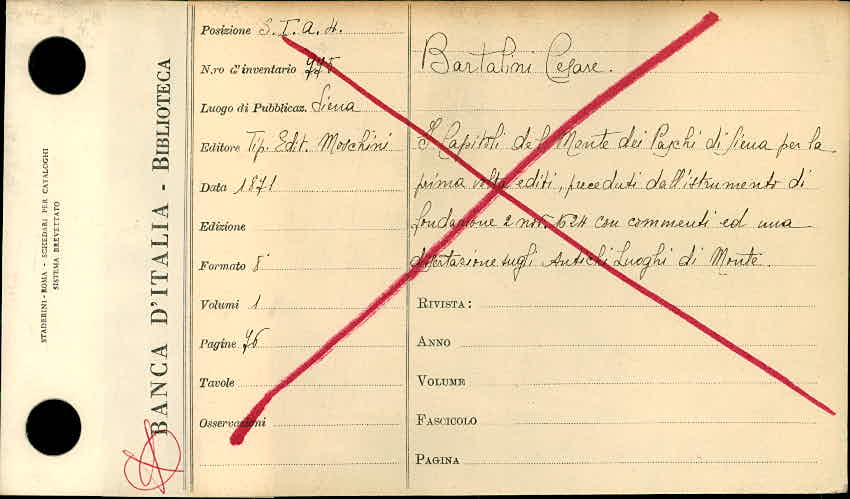 STADERINI-ROMA - SCHEDARI PER CATALOGHI
SISTEMA BREVETTATO
BANCA D'ITALIA - BIBLIOTECA
Posizione S. I. A. 4.
N.ro d'inventario 775
Luogo di Pubblicaz. Siena
Editore Tip. Edit. Moschini
Data 1871
Edizione
Formato 8°
Volumi 1
Pagine 76
Tavole
Osservazioni
Bartalini Cesare.
I Capitoli del Monte dei Paschi di Siena per la
prima volta editi, preceduti dall'istrumento di
fondazione 2 nov. 1624 con commenti ed una
dissertazione sugli Antichi Luoghi di Monte.
RIVISTA:
ANNO
VOLUME
FASCICOLO
PAGINA